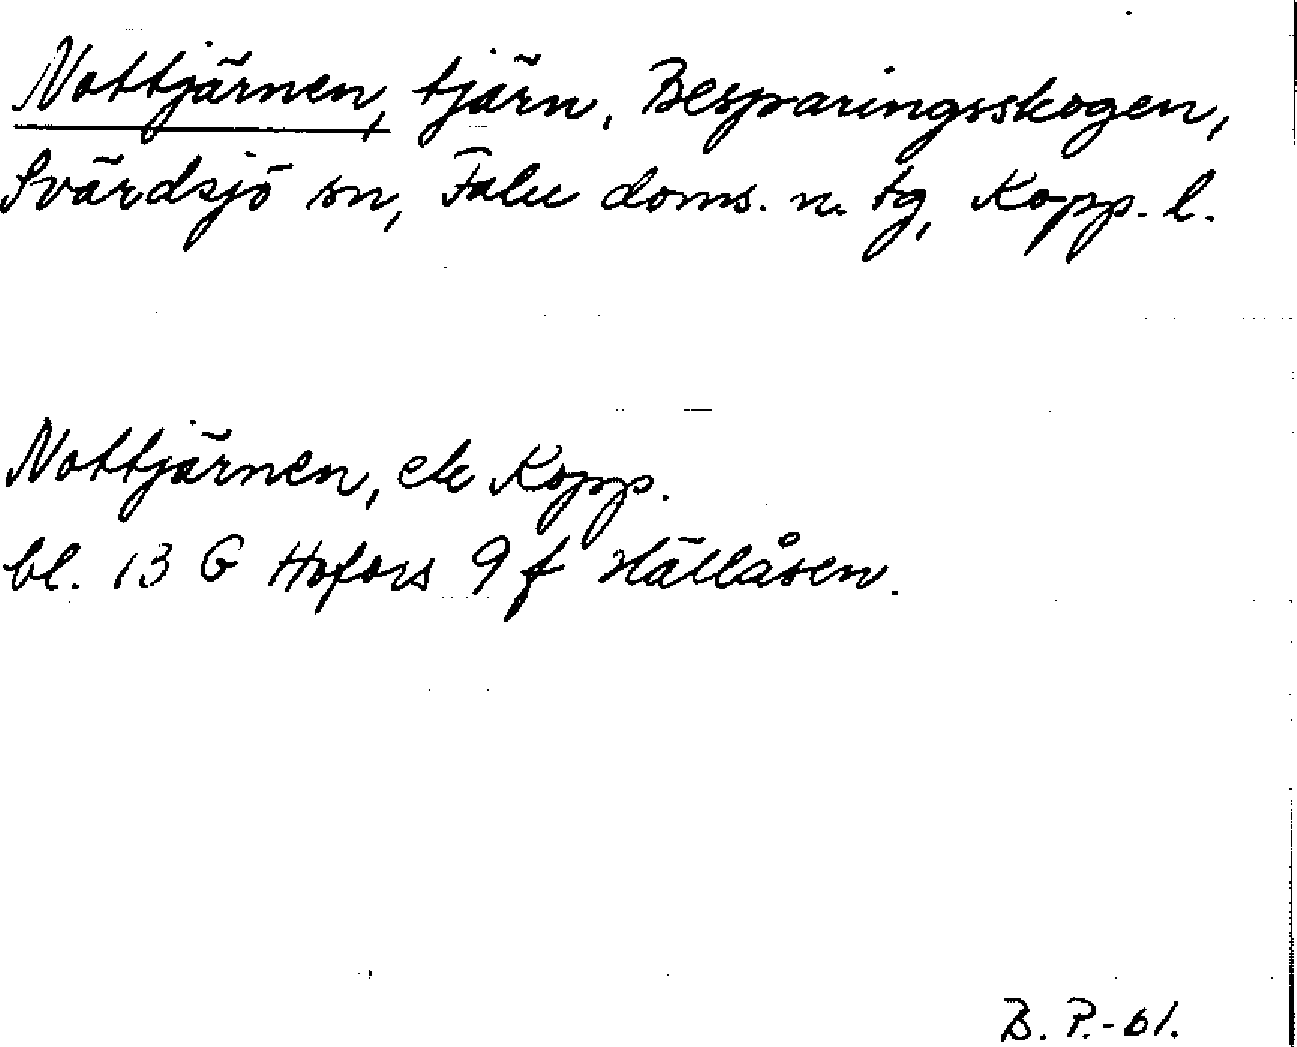 Nottjärnen, tjärn, Besparingsskogen,
Svärdsjö sn, Falu doms. n. tg, Kopp. l.
Nottjärnen, ek Kopp.
bl. 13 G Hofors 9 f Hällåsen.
B. P.-61.